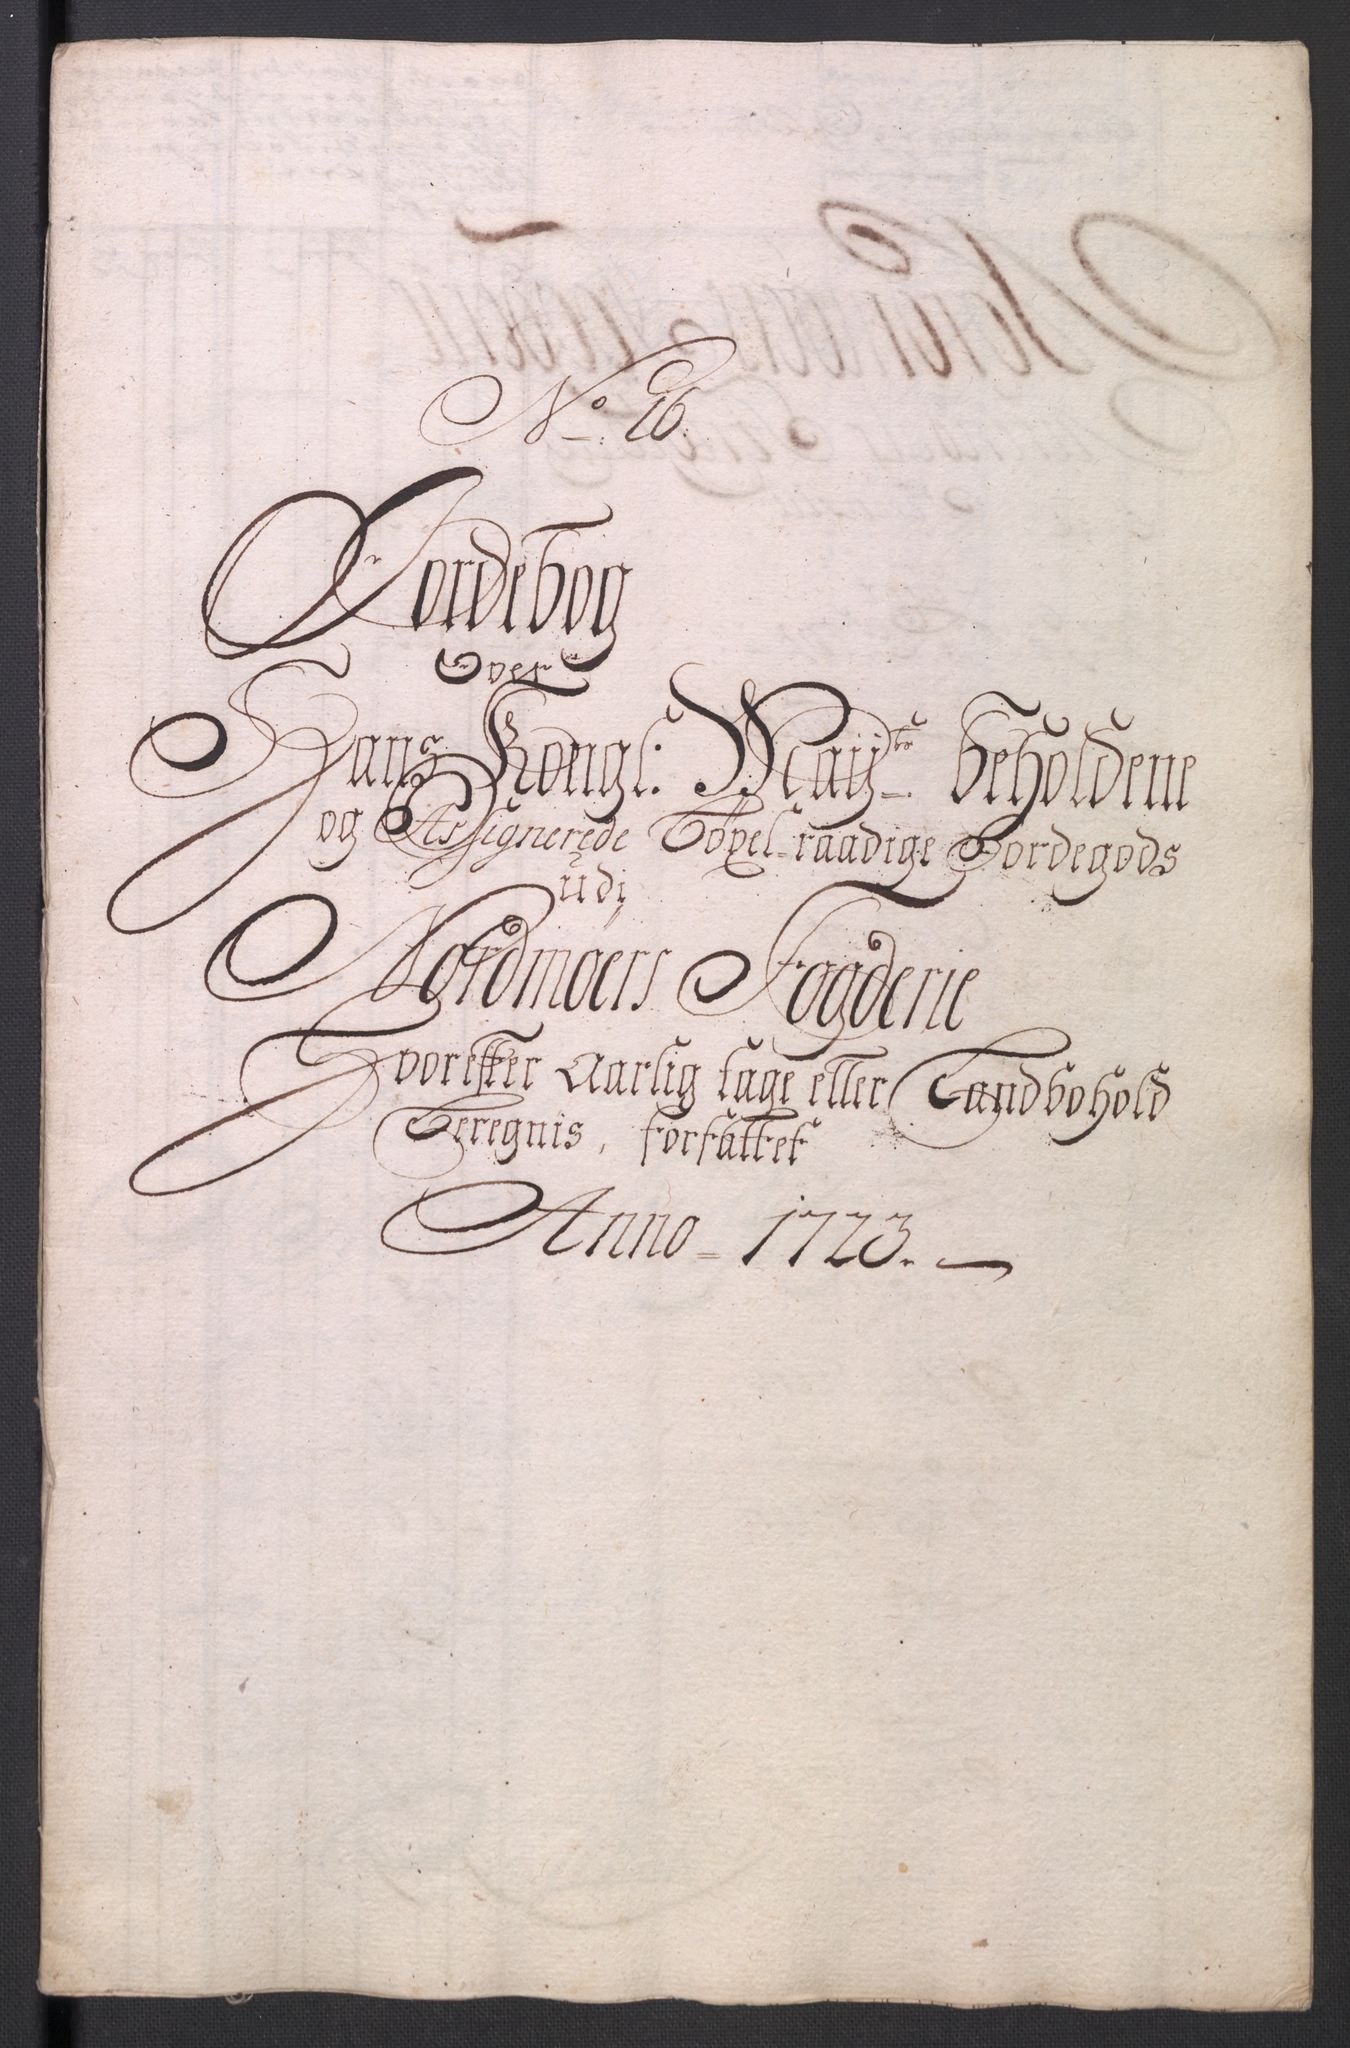 No 16.
Jordebog
Over
Hans Kongl: Mayts beholdene
og Assignerede Bøxel-raadige Jordegods
udi
Nordmøers Fogderie
Hvorefter Aarlig tage eller Landbohold
Beregnis, forfattet
Anno - 1723.